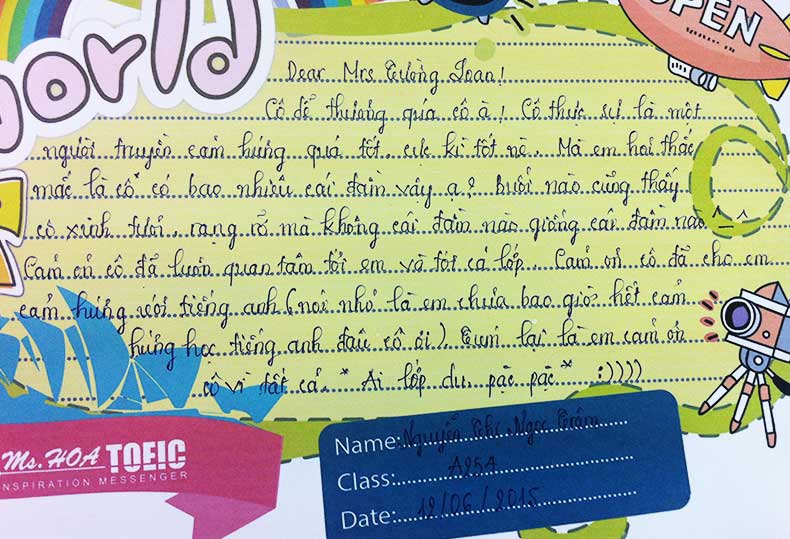 world
OPEN
Dear Mrs Tường Loan!
Cô dễ thương quá cô à! Cô thực sự là một
người truyền cảm hứng quá tốt, cực kì tốt nè. Mà em hơi thắc
mắc là cô có bao nhiêu cái đầm vậy ạ? Buổi nào cũng thấy
cô xinh tươi, rạng rỡ mà không cái đầm nào giống cái đầm nào ^_^
Cảm ơn cô đã luôn quan tâm tới em và tất cả lớp. Cảm ơn cô đã cho em
cảm hứng với tiếng anh (nói nhỏ là em chưa bao giờ hết cảm
hứng học tiếng anh đâu cô ơi) Tựu lại là em cảm ơn
cô vì tất cả. * Ai lớp du, pặc pặc * :))))
Ms.HOA TOEIC
INSPIRATION MESSENGER
Name: Nguyễn Thị Ngọc Trâm
Class: A254
Date: 12/06/2015